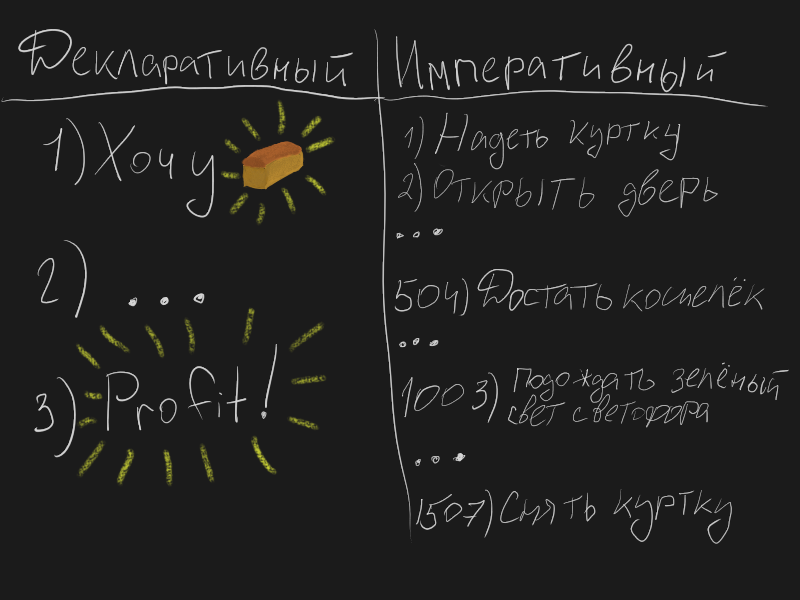 Декларативный
1) Хочу
2) ...
3) Profit!
Императивный
1) Надеть куртку
2) Открыть дверь
...
504) Достать кошелёк
...
1003) Подождать зелёный
свет светофора
...
1507) Снять куртку